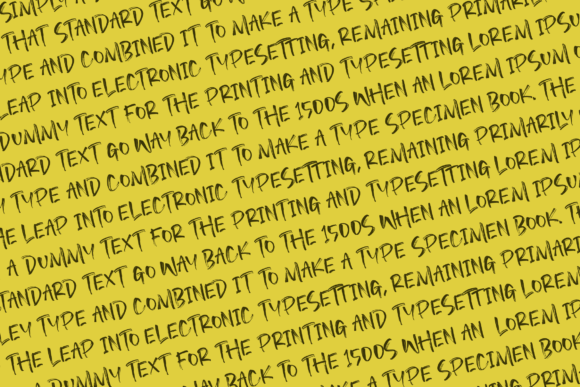 SIMPLY A
THAT STANDARD TEXT GO
TYPE AND COMBINED IT TO MAKE A TYPE
LEAP INTO ELECTRONIC TYPESETTING, REMAINING PRIMARILY
DUMMY TEXT FOR THE PRINTING AND TYPESETTING LOREM IPSUM
TEXT GO WAY BACK TO THE 1500S WHEN AN LOREM IPSUM
TYPE AND COMBINED IT TO MAKE A TYPE SPECIMEN BOOK. THE
THE LEAP INTO ELECTRONIC TYPESETTING, REMAINING PRIMARILY
A DUMMY TEXT FOR THE PRINTING AND TYPESETTING LOREM
STANDARD TEXT GO WAY BACK TO THE 1500S WHEN AN LOREM IPSUM
TYPE AND COMBINED IT TO MAKE A TYPE SPECIMEN BOOK.
THE LEAP INTO ELECTRONIC TYPESETTING, REMAINING
DUMMY TEXT FOR THE PRINTING AND TYPESETTING LOREM
TEXT GO WAY BACK TO THE 1500S WHEN AN LOREM
AND COMBINED IT TO MAKE A TYPE SPECIMEN BOOK
TYPESETTING, REMAINING